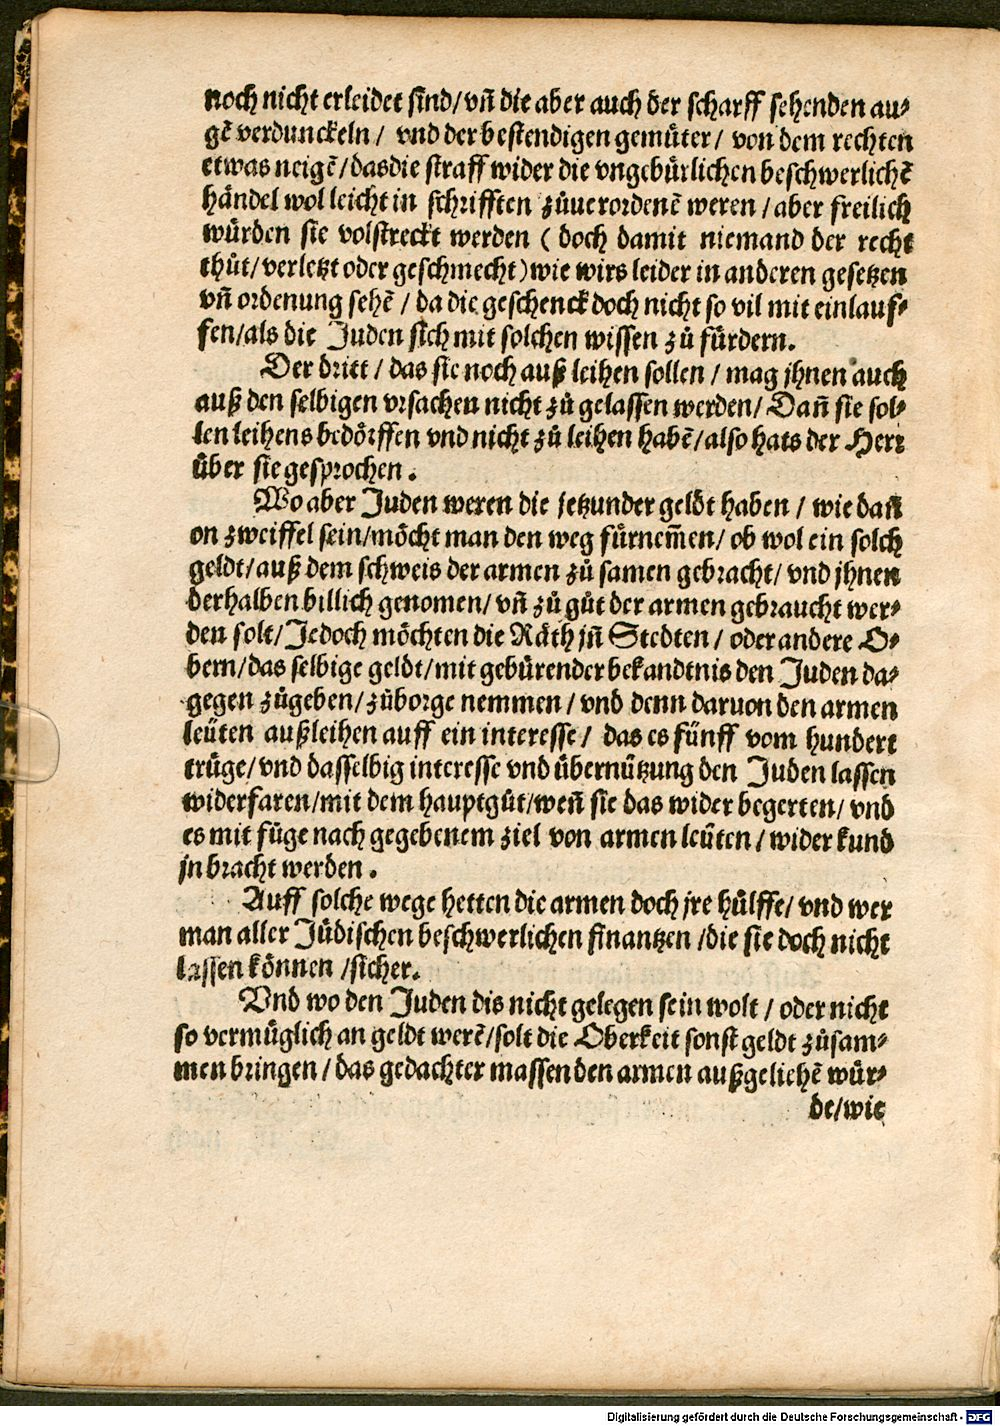 noch nicht erleidet sind/vñ die aber auch der scharff sehenden au-
gẽ verdunckeln/ vnd der bestendigen gemüter/ von dem rechten
etwas neigẽ/dasdie straff wider die vngebürlichen beschwerlichẽ
händel wol leicht in schrifften zůuerordenẽ weren/aber freilich
würden sie volstreckt werden ( doch damit niemand der recht
thůt/verletzt oder geschmecht) wie wirs leider in anderen gesetzen
vñ ordenung sehẽ/ da die geschenck doch nicht so vil mit einlauf-
fen/als die Juden sich mit solchen wissen zů fürdern.
Der dritt/ das sie noch auß leihen sollen/ mag jhnen auch
auß den selbigen vrsachen nicht zů gelassen werden/ Dañ sie sol-
len leihens bedörffen vnd nicht zů leihen habẽ/also hats der Herr
über sie gesprochen.
Wo aber Juden weren die jetzunder gelöt haben/ wie dañ
on zweiffel sein/möcht man den weg fürnem̃en/ ob wol ein solch
geldt/auß dem schweis der armen zů samen gebracht/ vnd jhnen
derhalben billich genomen/ vñ zů gůt der armen gebraucht wer-
den solt/Jedoch möchten die Räth jñ Stedten/ oder andere O-
bern/das selbige gelöt/mit gebürender bekandtnis den Juden da-
gegen zůgeben/zůborge nemmen/ vnd denn daruon den armen
leüten außleihen auff ein interesse/ das es fünff vom hundert
trüge/vnd dasselbig interesse vnd übernützung den Juden lassen
widerfaren/mit dem hauptgůt/weñ sie das wider begerten/ vnd
es mit fůge nach gegebenem ziel von armen leüten/ wider kund
jn bracht werden.
Auff solche wege hetten die armen doch jre hülffe/ vnd wer
man aller Jüdischen beschwerlichen finantzen/die sie doch nicht
lassen können/sicher.
Vnd wo den Juden dis nicht gelegen sein wolt/ oder nicht
so vermüglich an geldt werẽ/solt die Oberkeit sonst geldt zůsam-
men bringen/ das gedachter massen den armen außgeliehẽ wür-
de/wie
Digitalisierung gefördert durch die Deutsche Forschungsgemeinschaft - DFG